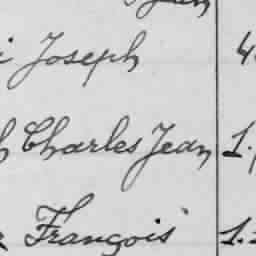 Joseph
Charles Jean 1.
François 1.